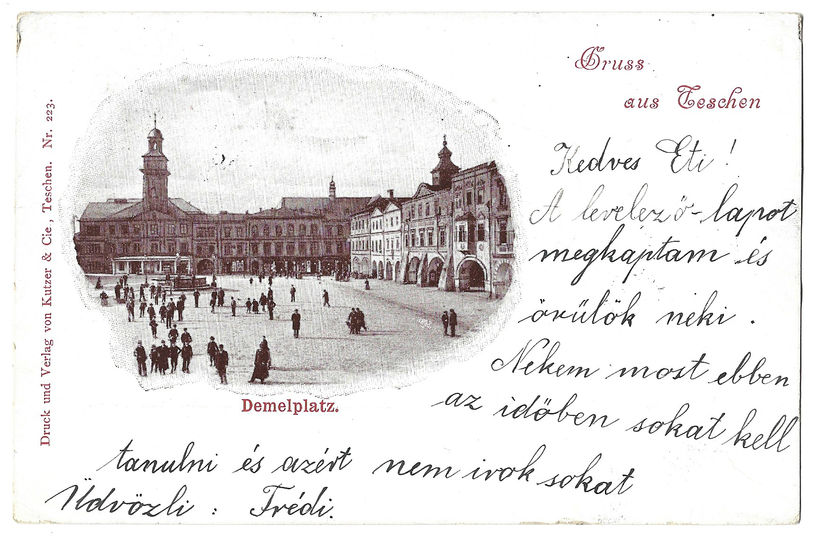 Gruss
aus Teschen
Druck und Verlag von Kutzer & Cie., Teschen. Nr. 223.
Demelplatz.
Kedves Eti!
A levelező-lapot
megkaptam és
örülök neki.
Nekem most ebben
az időben sokat kell
tanulni és azért nem irok sokat
Üdvözli: Frédi.